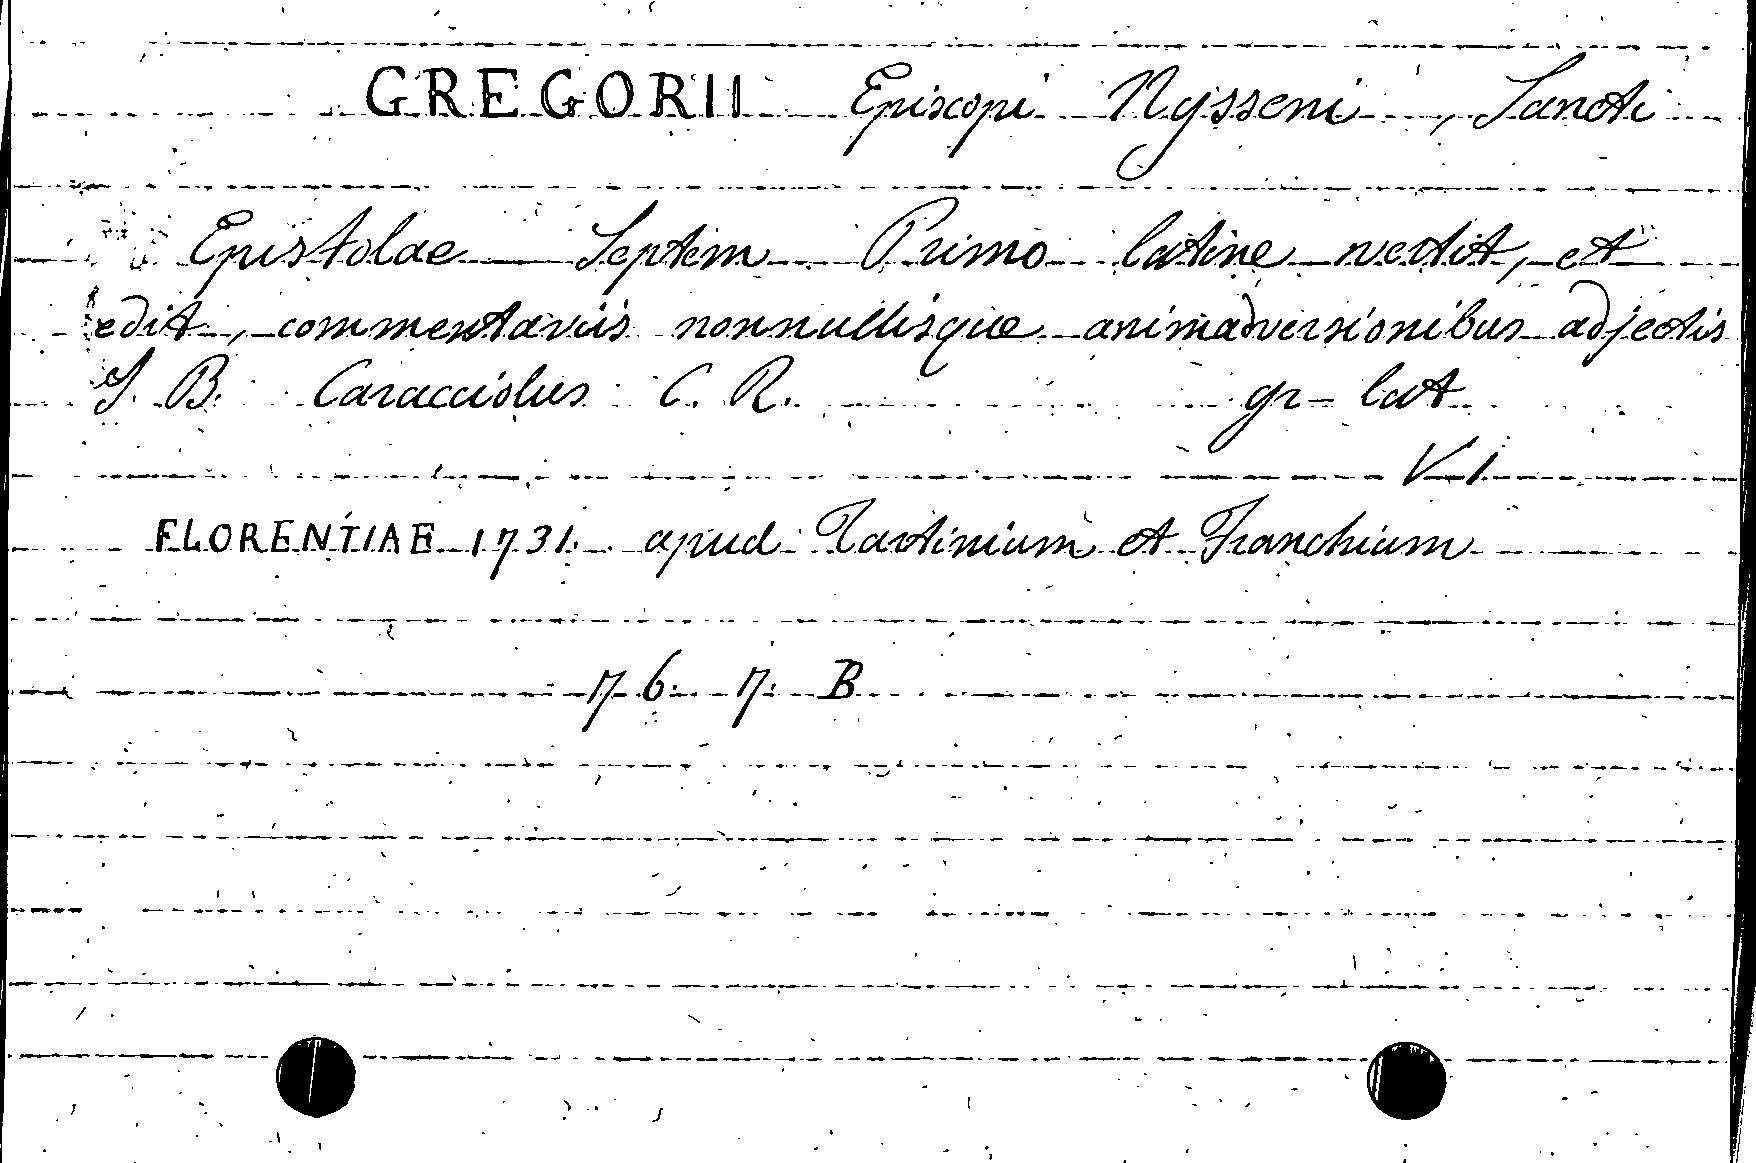 GREGORII Episcopi Nysseni, Sancti
Epistolae Septem Primo latine vertit, et
edit, commentariis nonnullisque animadversionibus adjectis
J. B. Caracciolus C. R. gr-lat
V 1
FLORENTIAE 1731. apud Tartinium et Franchium
76. 7. B